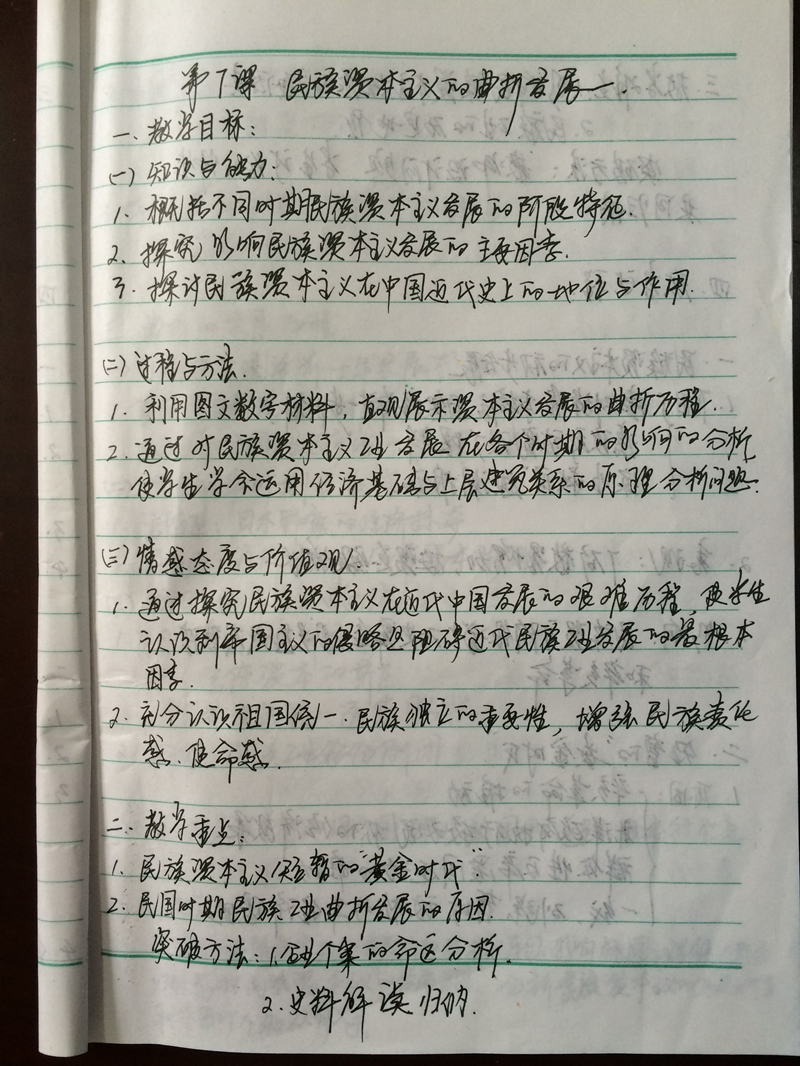 第7课 民族资本主义的曲折发展
一、教学目标:
(一)知识与能力:
1、概括不同时期民族资本主义发展的阶段特征.
2、探究影响民族资本主义发展的主要因素.
3、探讨民族资本主义在中国近代史上的地位与作用.
(二)过程与方法.
1、利用图文数字材料,直观展示资本主义发展的曲折历程.
2、通过对民族资本主义工业发展在各个时期的影响的分析,
使学生学会运用经济基础与上层建筑关系的原理分析问题.
(三)情感态度与价值观.
1、通过探究民族资本主义在近代中国发展的艰难历程,使学生
认识到帝国主义的侵略是阻碍近代民族工业发展的最根本
因素.
2、充分认识祖国统一、民族独立的重要性,增强民族责任
感、使命感.
二、教学重点:
1、民族资本主义短暂的“黄金时代”
2、民国时期民族工业曲折发展的原因.
突破方法:1、企业个案的命运分析.
2、史料解读归纳.